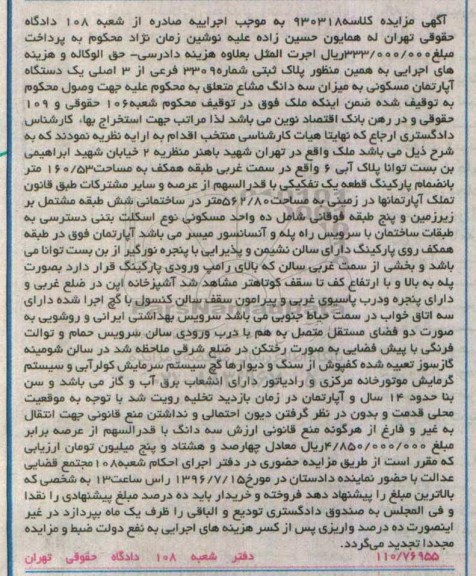 آگهی مزایده کلاسه۹۳۰۳۱۸ به موجب اجراییه صادره از شعبه ۱۰۸ دادگاه
حقوقی تهران له همایون حسین زاده علیه نوشین زمان نژاد محکوم به پرداخت
مبلغ۳۳۳/۰۰۰/۰۰۰ریال اجرت المثل بعلاوه هزینه دادرسی- حق الوکاله و هزینه
های اجرایی به همین منظور پلاک ثبتی شماره۳۳۰۹ فرعی از ۳ اصلی یک دستگاه
آپارتمان مسکونی به میزان سه دانگ مشاع متعلق به محکوم علیه جهت وصول محکوم
به توقیف شده ضمن اینکه ملک فوق در توقیف محکوم شعبه۱۰۶ حقوقی و ۱۰۹
حقوقی و در رهن بانک اقتصاد نوین می باشد لذا مراتب جهت استخراج بها، کارشناس
دادگستری ارجاع که نهایتا هیات کارشناسی منتخب اقدام به ارایه نظریه نمودند که به
شرح ذیل می باشد ملک واقع در تهران شهید باهنر منظریه ۲ خیابان شهید ابراهیمی
بن بست توانا پلاک آبی ۶ واقع در سمت غربی طبقه همکف به مساحت۱۶۰/۵۳ متر
بانضمام پارکینگ قطعه یک تفکیکی با قدرالسهم از عرصه و سایر مشترکات طبق قانون
تملک آپارتمانها در زمینی به مساحت۵۶۲/۸۰متر در ساختمانی شش طبقه مشتمل بر
زیرزمین و پنج طبقه فوقانی شامل ده واحد مسکونی نوع اسکلت بتنی دسترسی به
طبقات ساختمان با سرویس راه پله و آسانسور میسر می باشد آپارتمان فوق در طبقه
همکف روی پارکینگ دارای سالن نشیمن و پذیرایی با پنجره نورگیر از بن بست توانا می
باشد و بخشی از سمت غربی سالن که بالای رامپ ورودی پارکینگ قرار دارد بصورت
پله به بالا و با ارتفاع کف تا سقف کوتاهتر مشاهد شد آشپزخانه اپن در ضلع غربی و
دارای پنجره ودرب پاسیوی غربی و پیرامون سقف سالن کنسول با گچ اجرا شده دارای
سه اتاق خواب در سمت حیاط جنوبی می باشد سرویس بهداشتی ایرانی و روشویی به
صورت دو فضای مستقل متصل به هم با درب ورودی سالن سرویس حمام و توالت
فرنگی با پیش فضایی به صورت رختکن در ضلع شرقی ملاحظه شد در سالن شومینه
گازسوز تعبیه شده کفپوش از سنگ و دیوارها گچ سیستم سرمایش کولرآبی و سیستم
گرمایش موتورخانه مرکزی و رادیاتور دارای انشعاب برق آب و گاز می باشد و سن
بنا حدود ۱۴ سال و آپارتمان در زمان بازدید تخلیه رویت شد با توجه به موقعیت
محلی قدمت و بدون در نظر گرفتن دیون احتمالی و نداشتن منع قانونی جهت انتقال
به غیر و فارغ از هرگونه منع قانونی ارزش سه دانگ با قدرالسهم از عرصه برابر
مبلغ ۴/۸۵۰/۰۰۰/۰۰۰ریال معادل چهارصد و هشتاد و پنج میلیون تومان ارزیابی
که مقرر است از طریق مزایده حضوری در دفتر اجرای احکام شعبه۱۰۸مجتمع قضایی
عدالت با حضور نماینده دادستان در مورخ۱۳۹۶/۷/۱۵ راس ساعت۱۳ به شخصی که
بالاترین مبلغ را پیشنهاد دهد فروخته و خریدار باید ده درصد مبلغ پیشنهادی را نقدا
و فی المجلس به صندوق دادگستری تودیع و الباقی را ظرف یک ماه بپردازد در غیر
اینصورت ده درصد واریزی پس از کسر هزینه های اجرایی به نفع دولت ضبط و مزایده
مجددا تجدید می‌گردد.
۱۱۰/۷۶۹۵۵ دفتر شعبه ۱۰۸ دادگاه حقوقی تهران